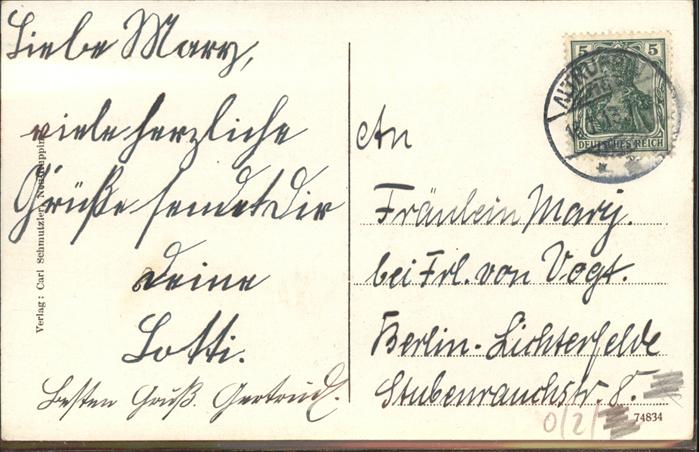 Liebe Mary,
viele herzliche
Grüße sendet Dir
Deine
Lotti.
Besten Gruß. Gertrud.
Verlag: Carl Schmutzler, Neuruppin
An
Fräulein Mary.
bei Frl. von Vogt.
Berlin-Lichterfelde
Stubenrauchstr. 8.
5 5
DEUTSCHES REICH
0/2/
74834